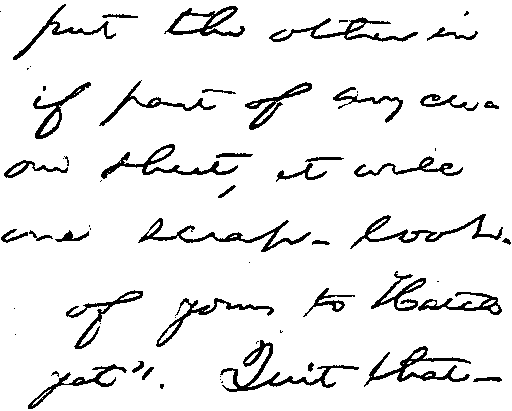 put the other in
if part of any
on sheet, it will
one scrap-book.
of yours to
yet". Quit that-